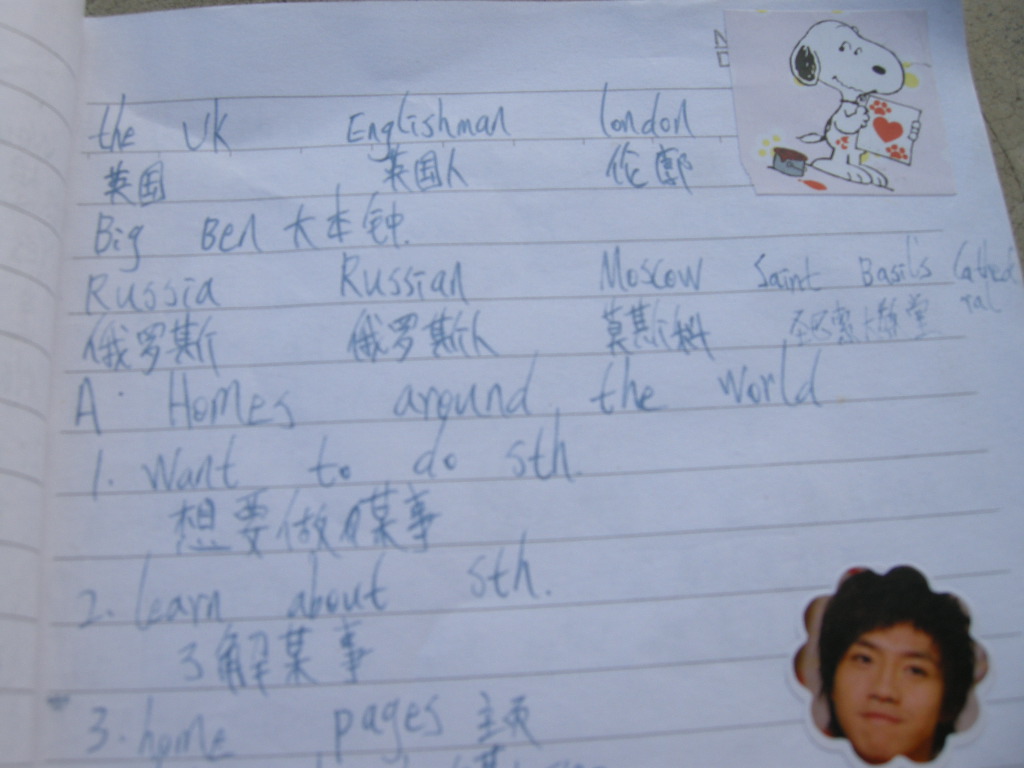 the UK Englishman london
英国 英国人 伦郭
Big Ben 大本钟.
Russia Russian Moscow Saint Basil's Cathedral
俄罗斯 俄罗斯人 莫斯科
A. Homes around the world
1. Want to do sth.
想要做某事
2. learn about sth.
了解某事
3. home pages 主页